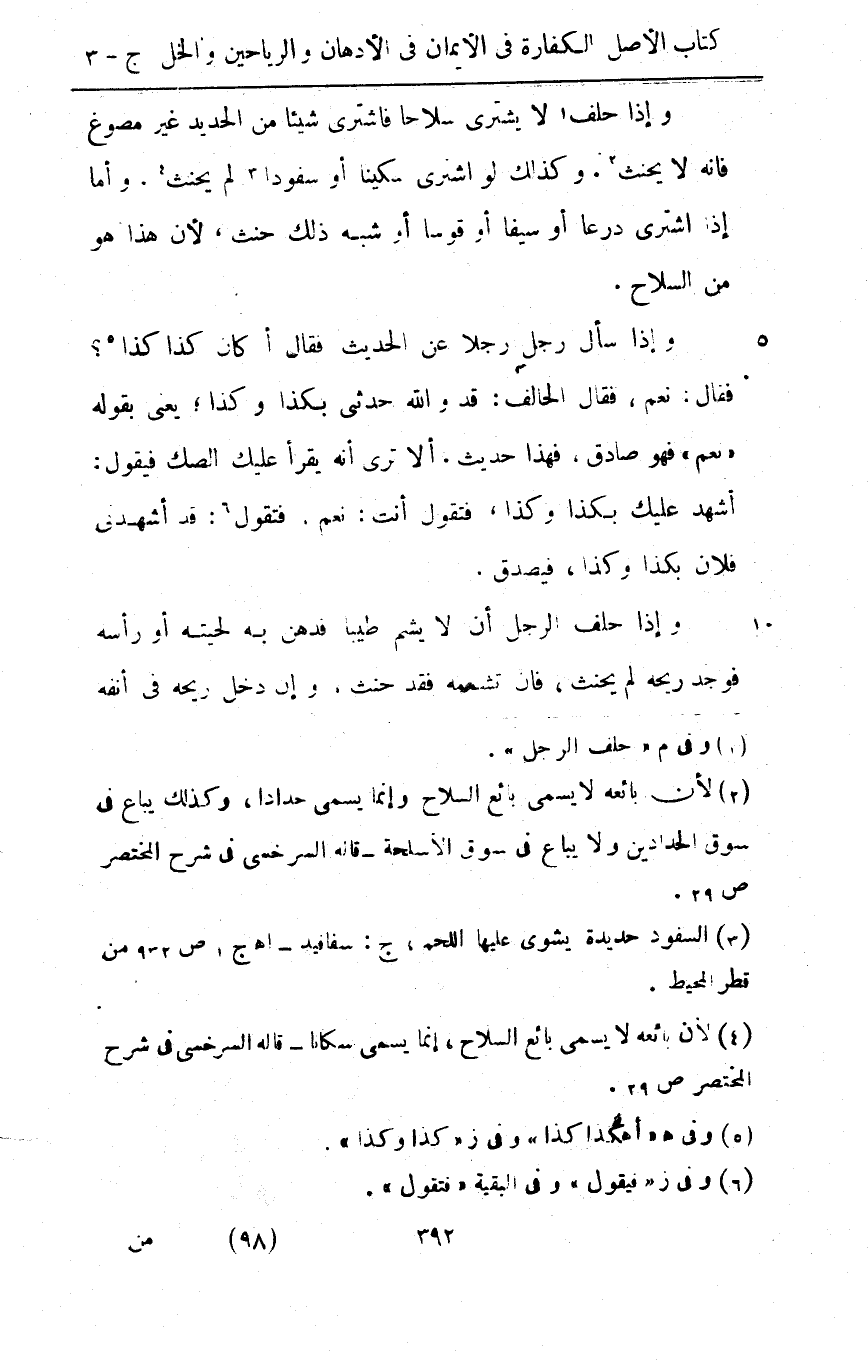 كتاب الأصل الكفارة فى الأيمان فى الأدهان و الرياحين و الخل ج - ٣
و إذا حلف١ لا يشترى سلاحا فاشترى شيئا من الحديد غير مصوغ
فانه لا يحنث٢ . و كذلك لو اشترى سكينا أو سفودا٣ لم يحنث٤ . و أما
إذا اشترى درعا أو سيفا أو قوسا أو شبه ذلك حنث ، لأن هذا هو
من السلاح .
٥ و إذا سأل رجل رجلا عن الحديث فقال أ كان كذا كذا٥ ؟
فقال : نعم ، فقال الحالف : قد و الله حدثنى بكذا و كذا ؛ يعنى بقوله
« نعم » فهو صادق ، فهذا حديث . ألا ترى أنه يقرأ عليك الصك فيقول :
أشهد عليك بكذا وكذا ، فتقول أنت : نعم . فتقول٦ : قد أشهدنى
فلان بكذا وكذا ، فيصدق .
١٠ و إذا حلف الرجل أن لا يشم طيبا فدهن به لحيته أو رأسه
فوجد ريحه لم يحنث ، فان تشممه فقد حنث . و إن دخل ريحه فى أنفه
(١) و فى م « حلف الرجل » .
(٢) لأن بائعه لا يسمى بائع السلاح وإنما يسمى حدادا ، وكذلك يباع فى
سوق الحدادين و لا يباع فى سوق الأسلحة ــ قاله السرخسى فى شرح المختصر
ص ٢٩ .
(٣) السفود حديدة يشوى عليها اللحم ، ج : سفافيد ــ اه ج ١ ص ٩٣٢ من
قطر المحيط .
(٤) لأن بائعه لا يسمى بائع السلاح ، إنما يسمى سكانا ــ قاله السرخسى فى شرح
المختصر ص ٢٩ .
(٥) و فى ه « أهكذا كذا » و فى ز « كذا وكذا » .
(٦) و فى ز « فيقول » و فى البقية « فتقول » .
٣٩٢ (٩٨) من